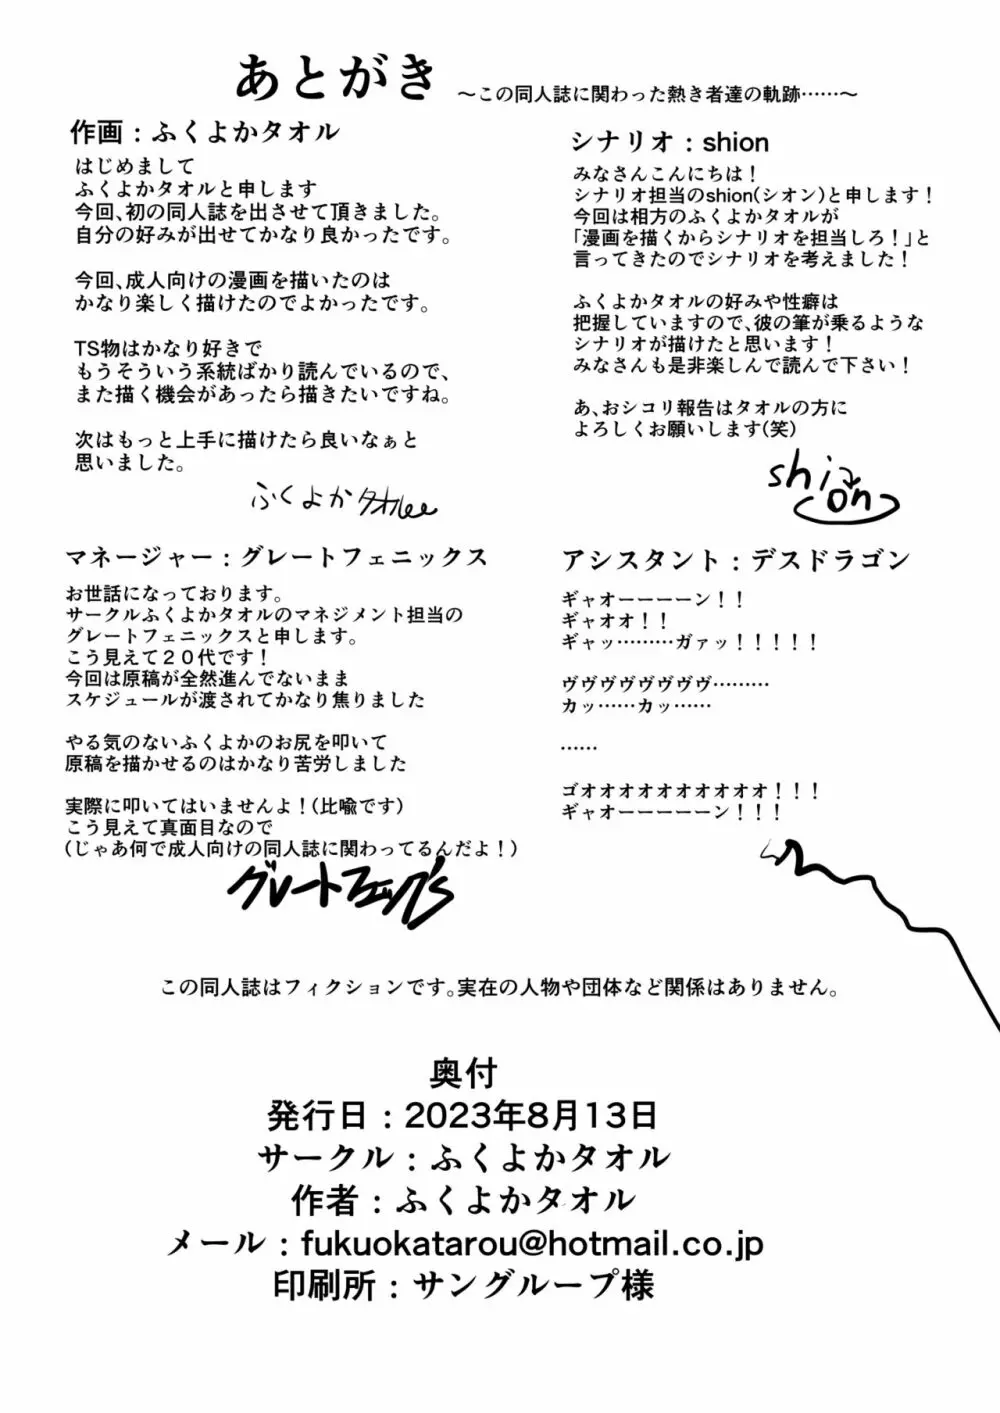 あとがき ～この同人誌に関わった熱き者達の軌跡……～
作画：ふくよかタオル
はじめまして
ふくよかタオルと申します
今回、初の同人誌を出させて頂きました。
自分の好みが出せてかなり良かったです。
今回、成人向けの漫画を描いたのは
かなり楽しく描けたのでよかったです。
TS物はかなり好きで
もうそういう系統ばかり読んでいるので、
また描く機会があったら描きたいですね。
次はもっと上手に描けたら良いなぁと
思いました。
シナリオ：shion
みなさんこんにちは！
シナリオ担当のshion(シオン)と申します！
今回は相方のふくよかタオルが
「漫画を描くからシナリオを担当しろ！」と
言ってきたのでシナリオを考えました！
ふくよかタオルの好みや性癖は
把握していますので、彼の筆が乗るような
シナリオが描けたと思います！
みなさんも是非楽しんで読んで下さい！
あ、おシコリ報告はタオルの方に
よろしくお願いします(笑)
shion
マネージャー：グレートフェニックス
お世話になっております。
サークルふくよかタオルのマネジメント担当の
グレートフェニックスと申します。
こう見えて２０代です！
今回は原稿が全然進んでないまま
スケジュールが渡されてかなり焦りました
やる気のないふくよかのお尻を叩いて
原稿を描かせるのはかなり苦労しました
実際に叩いてはいませんよ！(比喩です)
こう見えて真面目なので
(じゃあ何で成人向けの同人誌に関わってるんだよ！)
アシスタント：デスドラゴン
ギャオーーーーン！！
ギャオオ！！
ギャッ………ガァッ！！！！！
ヴヴヴヴヴヴヴヴ………
カッ……カッ……
……
ゴオオオオオオオオオオ！！！
ギャオーーーーーン！！！
この同人誌はフィクションです。実在の人物や団体など関係はありません。
奥付
発行日：2023年8月13日
サークル：ふくよかタオル
作者：ふくよかタオル
メール：fukuokatarou@hotmail.co.jp
印刷所：サングループ様